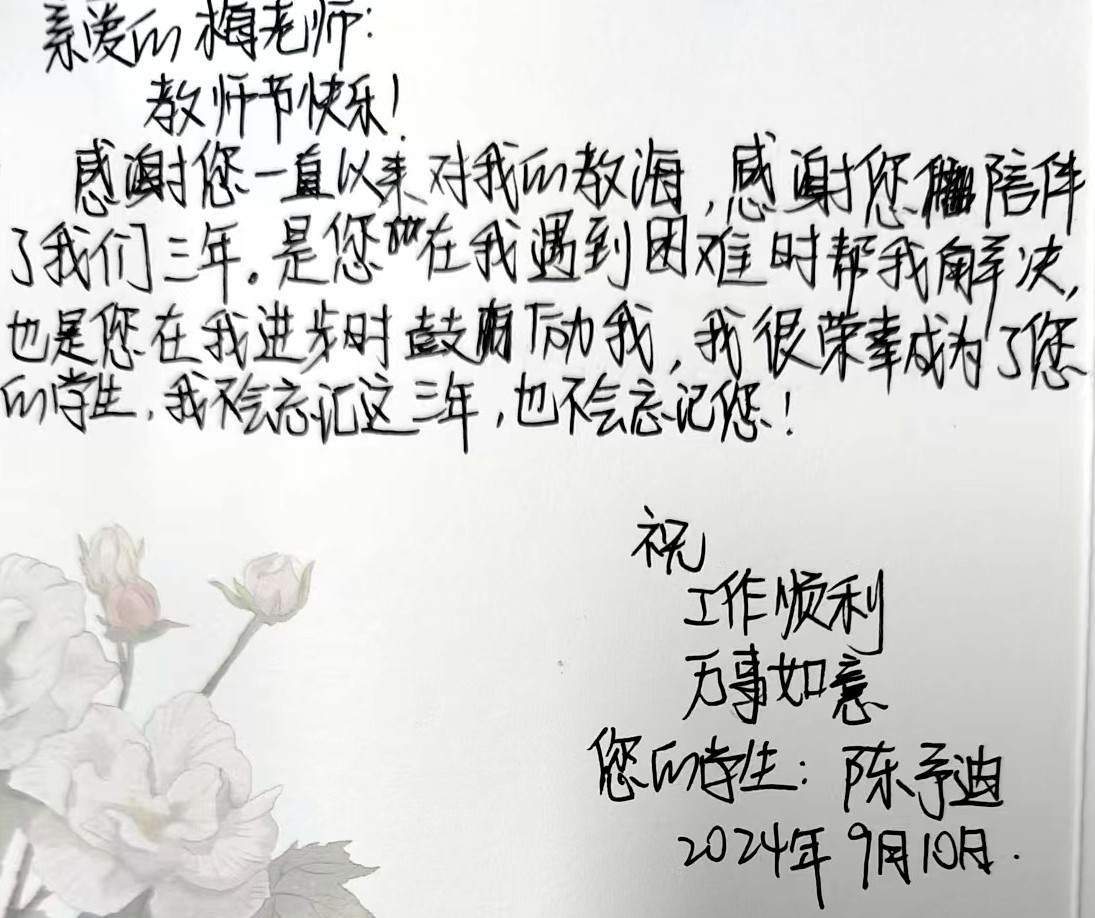 亲爱的梅老师:
教师节快乐!
感谢您一直以来对我的教海,感谢您陪伴
了我们三年。是您在我遇到困难时帮我解决,
也是您在我进步时鼓励我,我很荣幸成为了您
的学生,我不会忘记这三年,也不会忘记您!
祝
工作顺利
万事如意
您的学生:陈予迪
2024年9月10日.